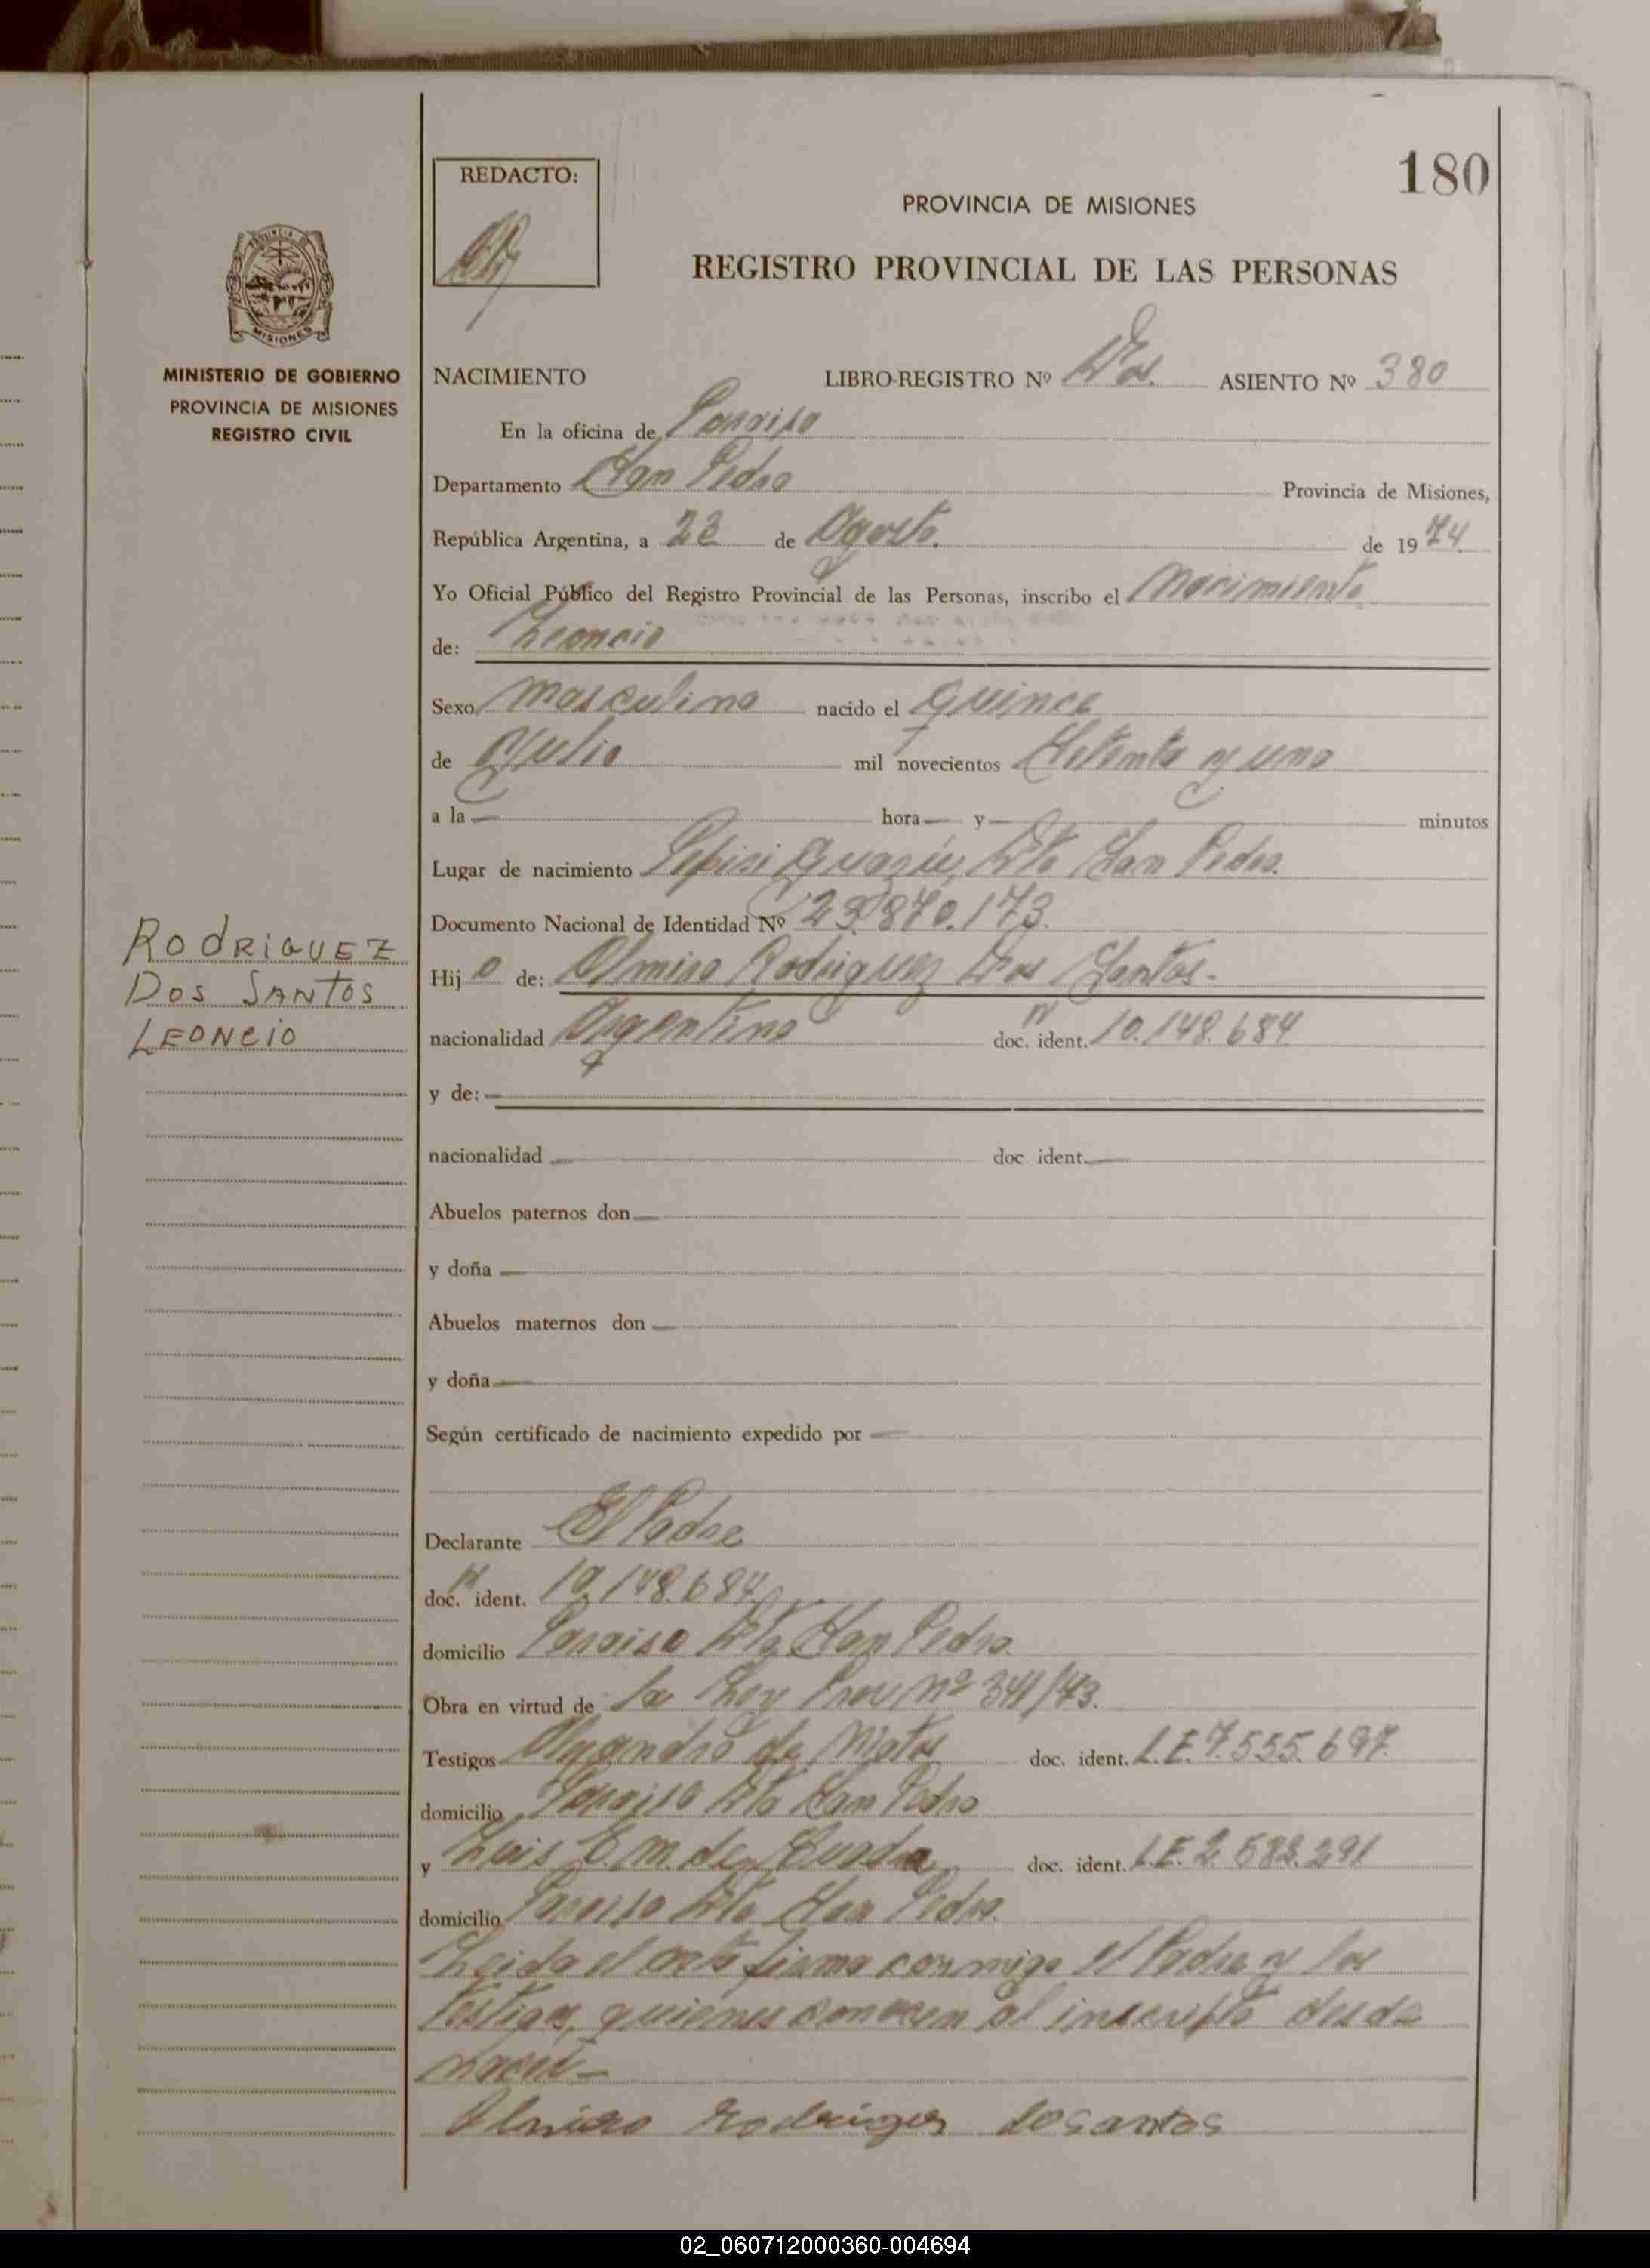 180
REDACTO:
PROVINCIA DE MISIONES
REGISTRO PROVINCIAL DE LAS PERSONAS
PROVINCIA DE
MISIONES
MINISTERIO DE GOBIERNO
PROVINCIA DE MISIONES
REGISTRO CIVIL
NACIMIENTO LIBRO-REGISTRO Nº Dos. ASIENTO Nº 380
En la oficina de Paraiso
Departamento San Pedro Provincia de Misiones,
República Argentina, a 22 de Agosto. de 1974
Yo Oficial Público del Registro Provincial de las Personas, inscribo el Nacimiento
de: Leoncio
Sexo masculino nacido el quince
de Julio mil novecientos Setenta y uno
a la — hora — y — minutos
Lugar de nacimiento Pepiri Guazú, Dto San Pedro.
Documento Nacional de Identidad Nº 23.870.173.
RODRIGUEZ
DOS SANTOS
LEONCIO
Hijo de: Almiro Rodriguez Dos Santos.-
nacionalidad Argentino doc. ident. 10.148.684
y de: —
nacionalidad — doc ident. —
Abuelos paternos don —
y doña —
Abuelos maternos don —
y doña —
Según certificado de nacimiento expedido por —
Declarante El Padre
doc. ident. 10.148.684
domicilio Paraiso Dto San Pedro.
Obra en virtud de la Ley Prov nº 341/73.
Testigos de doc. ident. L.E. 7.555.697.
domicilio Paraiso Dto San Pedro
y Luis de doc. ident. L.E. 2.582.291
domicilio Paraiso Dto San Pedro.
Leida el acta firma conmigo el Padre y los
testigos, quienes conocen al inscripto desde
nació.-
Almiro Rodriguez dosantos
02_060712000360-004694